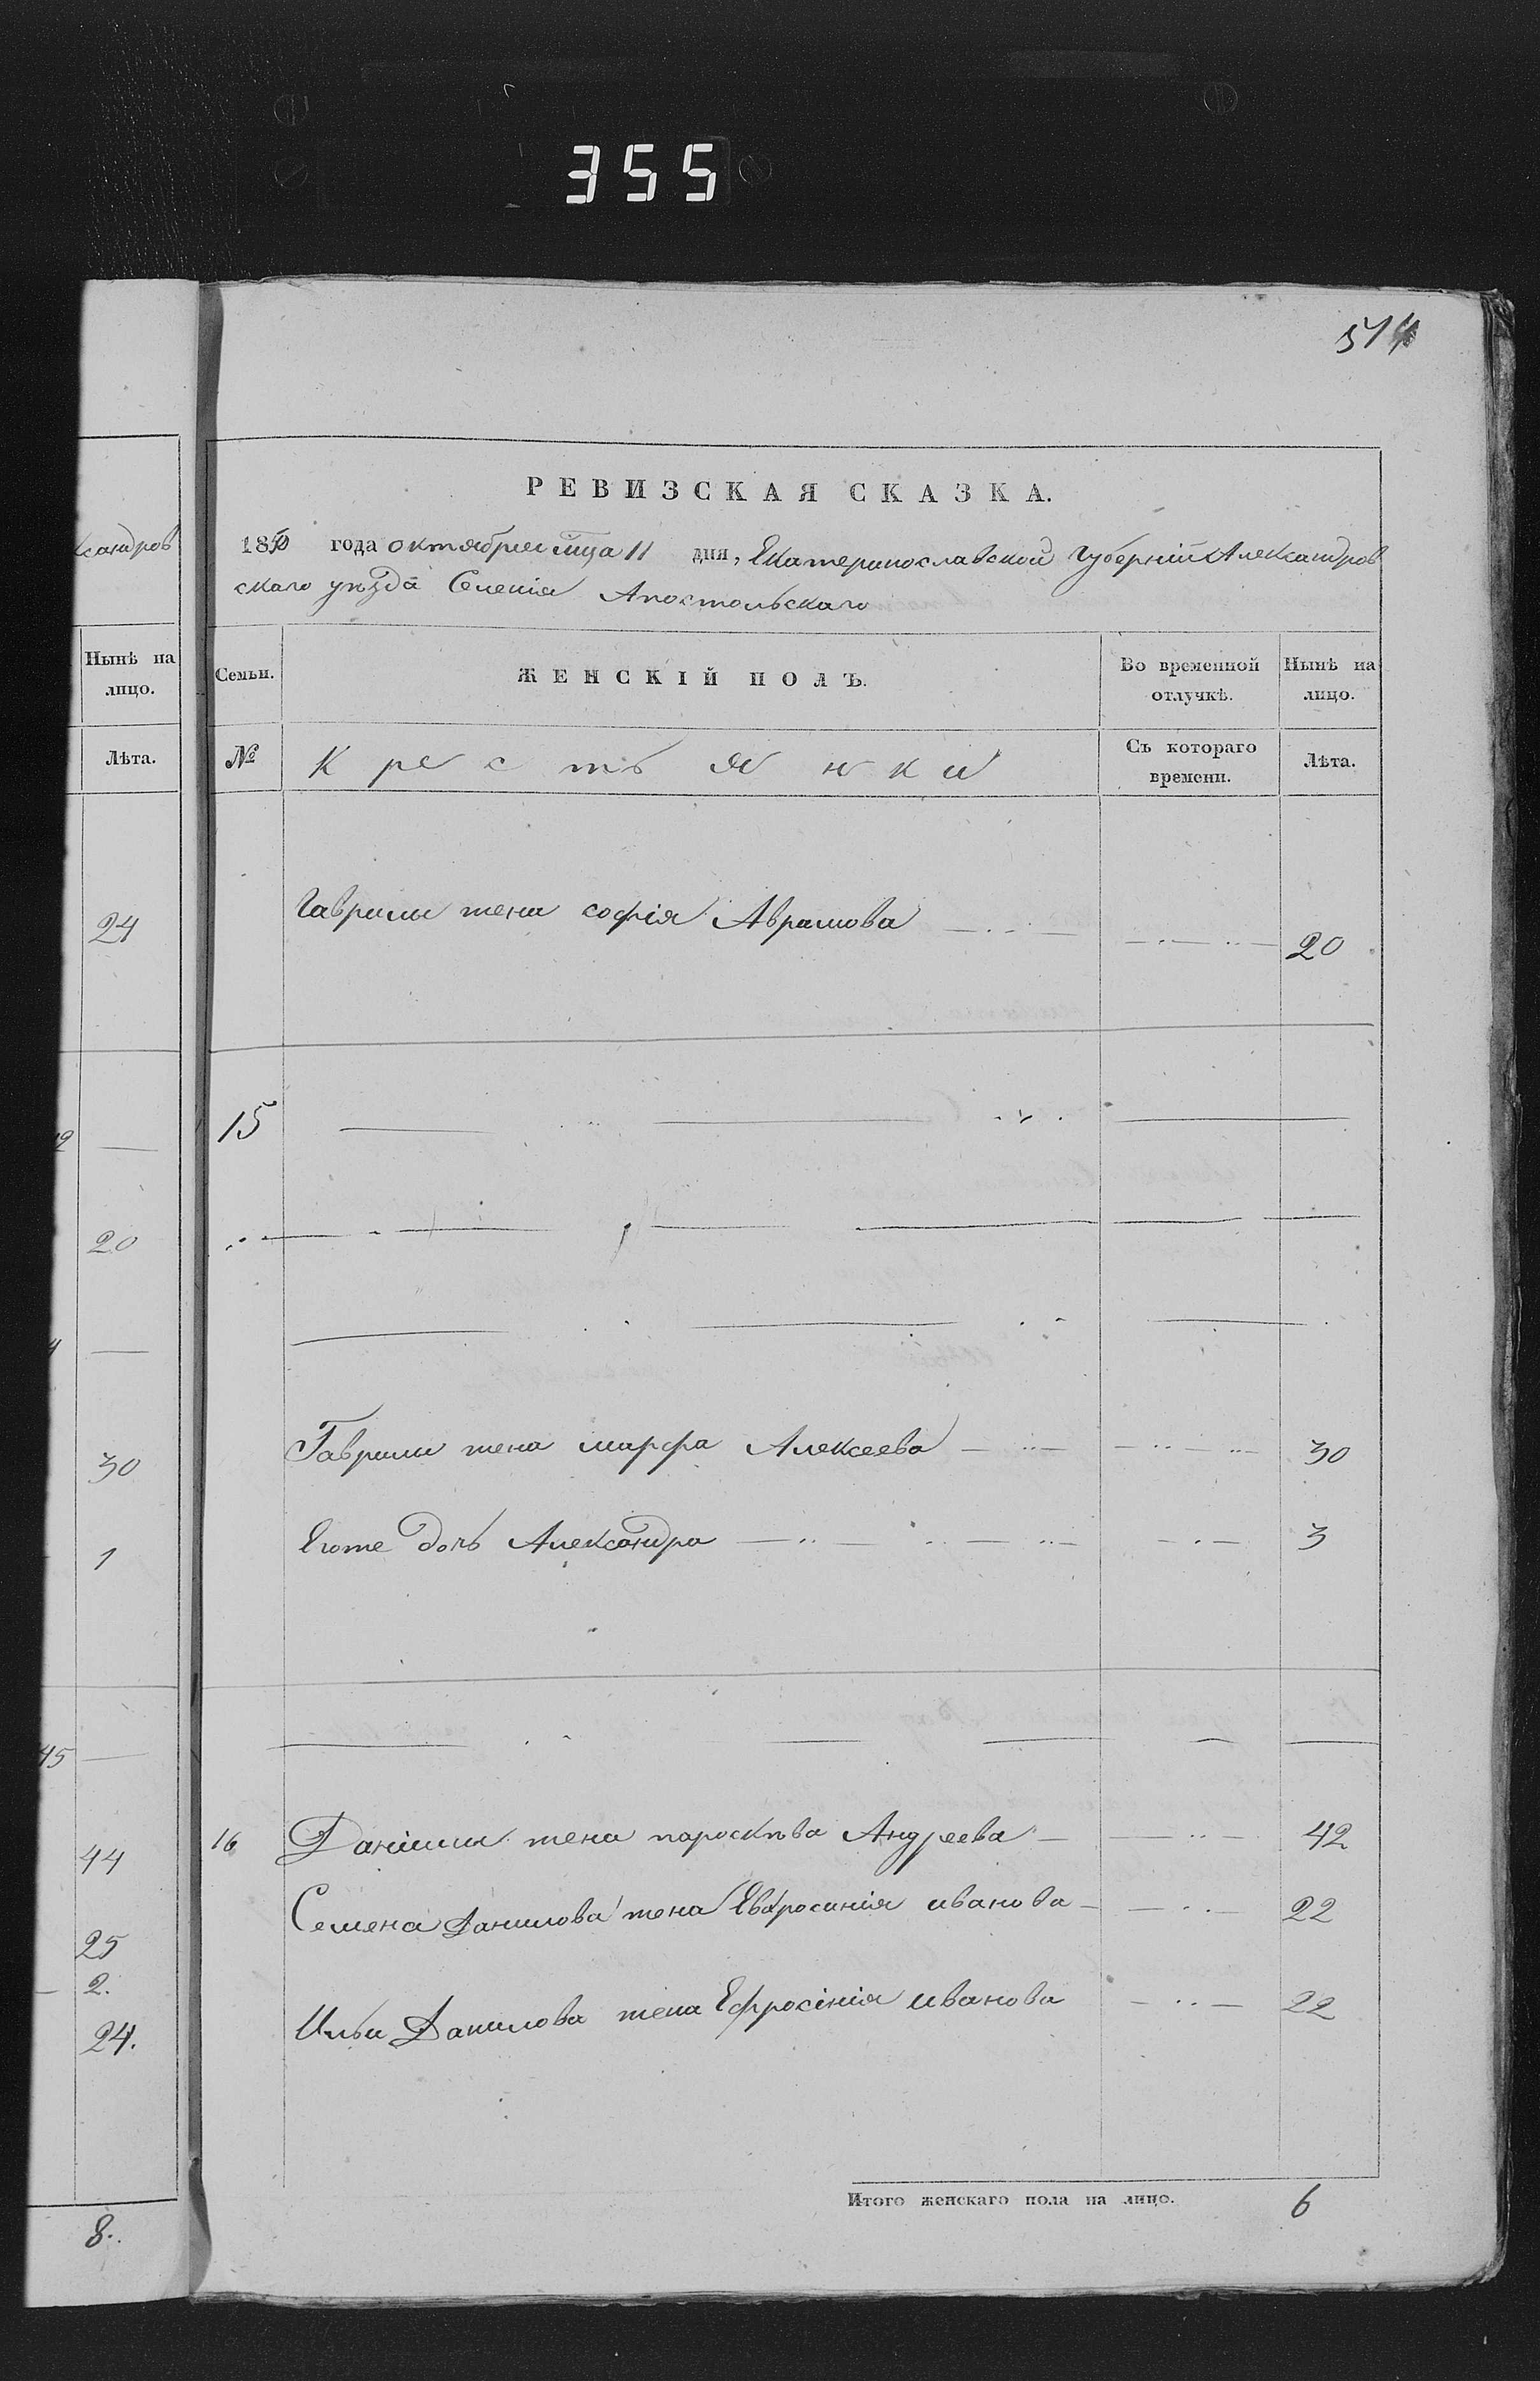 355
514
РЕВИЗСКАЯ СКАЗКА.
1850 года октября мца 11 дня, Екатеринославской Губерніи Александров
скаго уѣзда Селенія Апостольскаго
ксандров
Нынѣ на лицо.
Лѣта.
24
20
30
1
45
44
25
2.
24.
8.
Семьи. ЖЕНСКІЙ ПОЛЪ. Во временной отлучкѣ. Нынѣ на лицо.
№ Крестьянки Съ котораго времени. Лѣта.
Гаврилы жена софія Аврамова 20
15
Гаврилы жена марфа Алексеева 30
Егоже дочь Александра 3
16 Данііилы жена пароскѣва Андреева 42
Семена Данилова жена Евфросинія иванова 22
Ильи Данилова жена Ефросінія иванова 22
Итого женскаго пола на лицо. 6